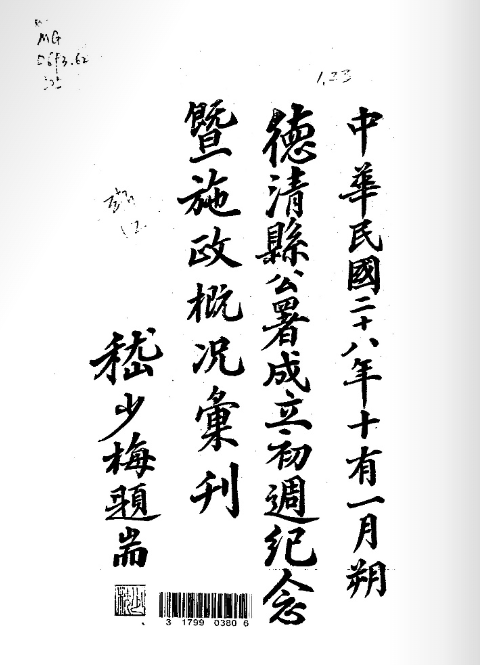 中華民國二十八年十有一月朔
德清縣公署成立初週紀念
暨施政概况彙刊
嵇少梅題耑
MG
D693.62
1.23
3 1799 0380 6